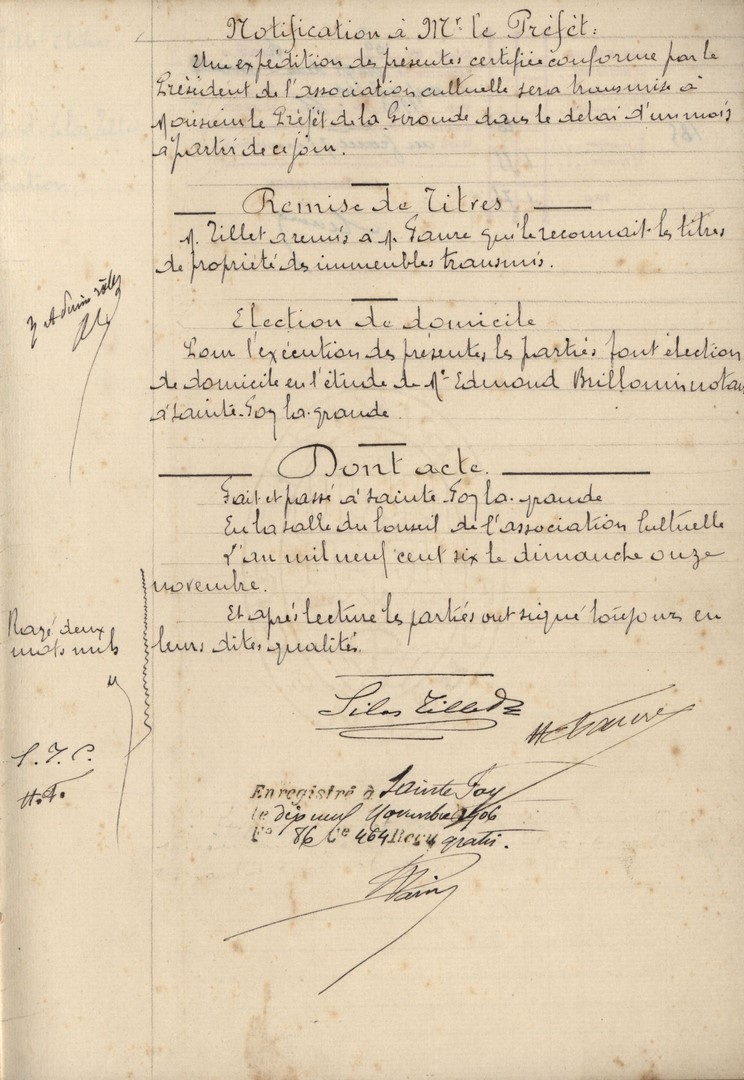 Notification à Mr. le Préfet:
Une expédition des présentes certifiée conforme par le
Président de l'association cultuelle sera transmise à
Monsieur le Préfet de la Gironde dans le délai d'un mois
à partir de ce jour.
Remise de Titres
M. Tillet a remis à M. Faure qui le reconnait les titres
de propriété des immeubles transmis.
Election de domicile
Pour l'exécution des présentes, les parties font élection
de domicile en l'étude de Me Edmond notaire
à Sainte-Foy la-grande.
Dont acte.
Fait et passé à Sainte Foy la-grande
En la salle du Conseil de l'association Cultuelle
L'an mil neuf cent six le dimanche onze
novembre.
Et après lecture les parties ont signé toujours en
leurs dites qualités.
Rayé deux
mots nuls
S.T.C.
H.F.
Silas Tillet
H Faure
Enregistré à Sainte Foy
le dix neuf Novembre 1906
Fo 86 Ce 464 Reçu gratis.